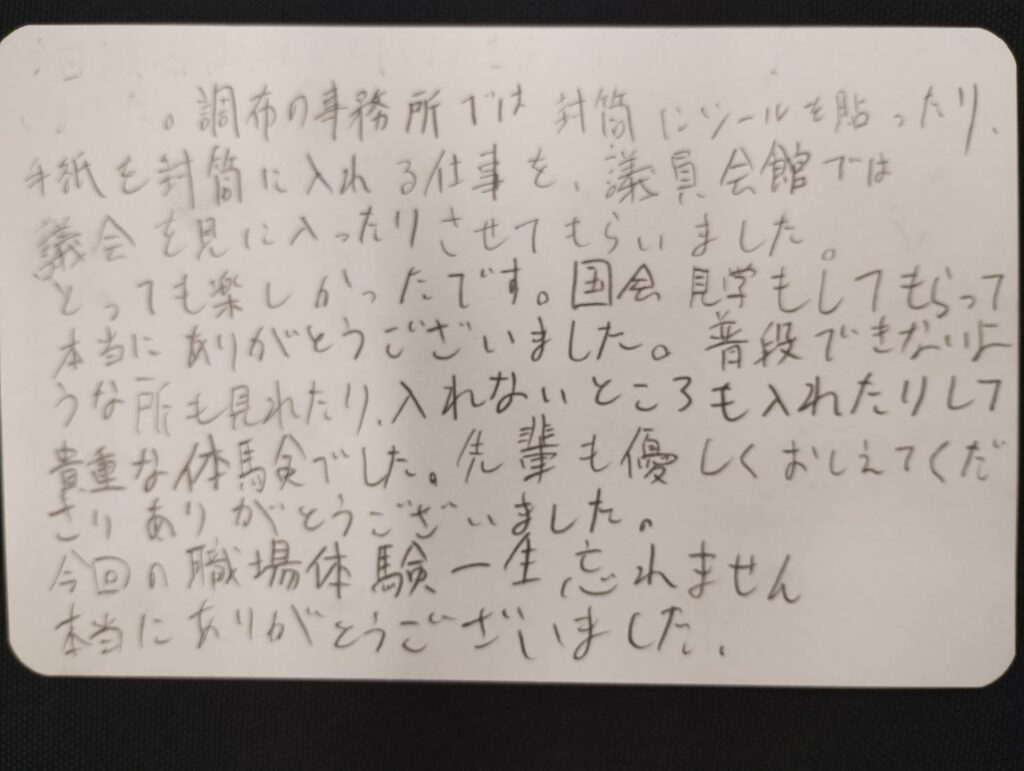 。調布の事務所では封筒にシールを貼ったり、
手紙を封筒に入れる仕事を、議員会館では
議会を見に入ったりさせてもらいました。
とっても楽しかったです。国会見学もしてもらって
本当にありがとうございました。普段できないよ
うな所も見れたり、入れないところも入れたりして
貴重な体験でした。先輩も優しくおしえてくだ
さりありがとうございました。
今回の職場体験一生忘れません
本当にありがとうございました、